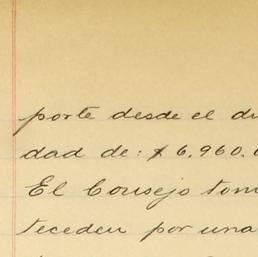 porte desde el di
dad de: $ 6.960.0
El Consejo tom
teceden por una